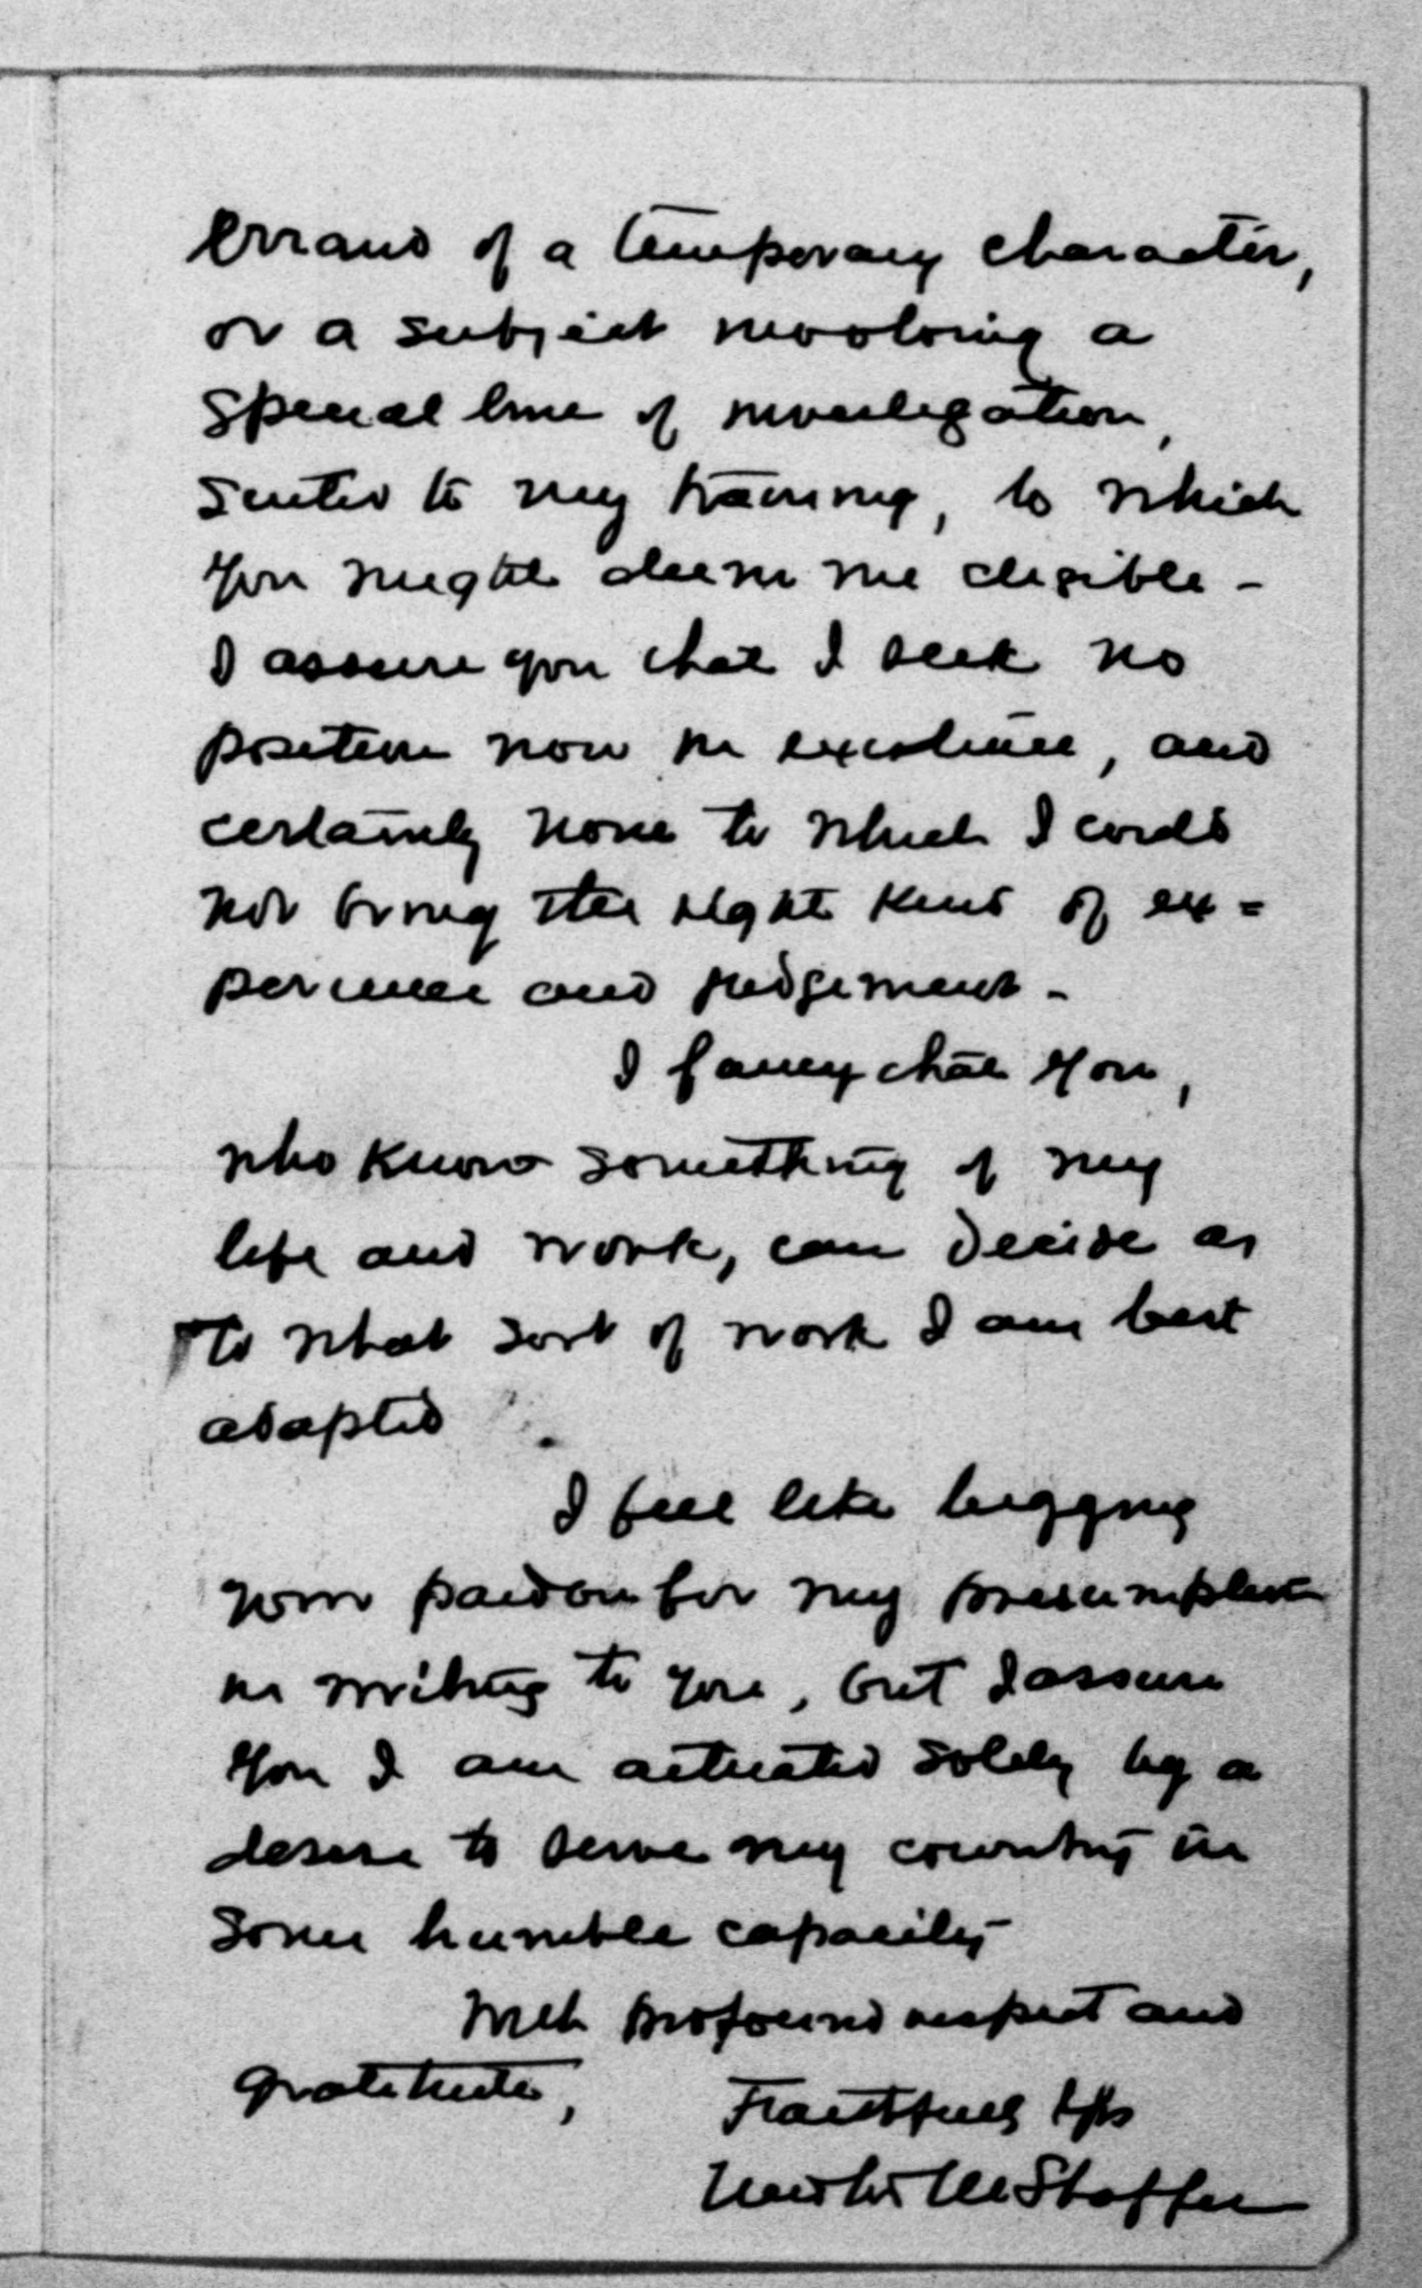 errand of a temporary character,
or a subject involving a
special line of investigation,
suited to my training, to which
you might deem me eligible -
I assure you that I seek no
position now in existence, and
certainly none to which I could
not bring the right kind of ex=
perience and judgement -
I fancy that you,
who know something of my
life and work, can decide as
to what sort of work I am best
adapted
I feel like begging
your pardon for my presumption
in writing to you, but I assure
you I am actuated solely by a
desire to serve my country in
some humble capacity -
With profound respect and
gratitude,
Faithfully yrs